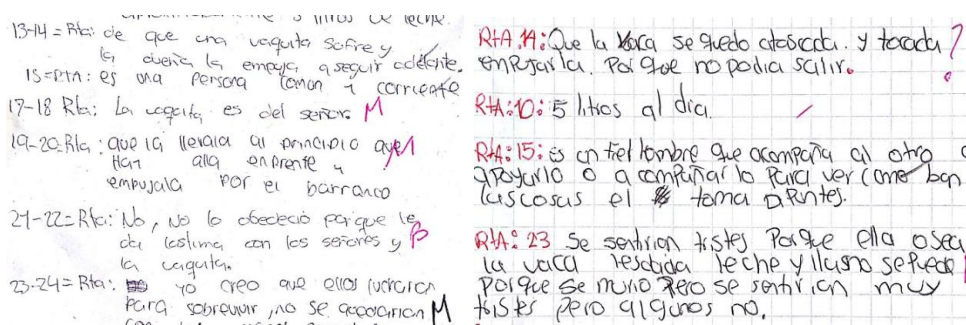 5 litros de leche.
13-14 = Rta: de que una vaquita sufre y
la dueña la empuja a seguir adelante.
15 = RTA: es una persona comon y corriente
17-18 Rta: La vaquita es del señor. M
19-20 = Rta: que la llevara al principio que M
Hay alla enfrente y
empujala por el barranco
21-22 = Rta: No, no lo obedeció porque le B
da lastima con los señores y
la vaquita.
23-24 = Rta: yo creo que ellos lucharon
para sobrevivir, no se M
RtA.14: Que la vaca se quedo atascada. y tocada ?
enpujarla. Por que no podia salir.
RtA:10: 5 litros al dia.
RtA:15: es un fiel hombre que acompaña al otro a
apoyarlo o a compañarlo Para ver como ban
las cosas el toma apuntes.
RtA: 23 Se sentirion tristes Porque ella osea
la vaca lesdaba leche y llasno sepuede
porque se murio Pero se sentirian muy
tristes pero algunos no.